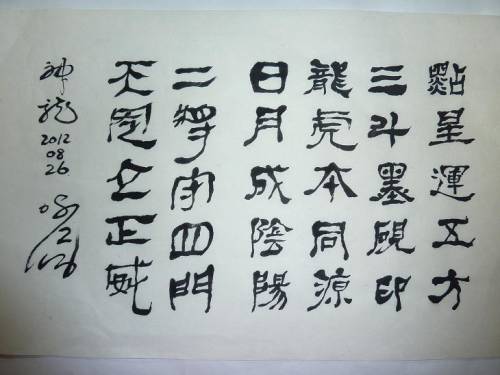 點星運五方
三斗墨硯印
龍虎本同源
日月成陰陽
二守四門
天立正
神龍
2012
08
26